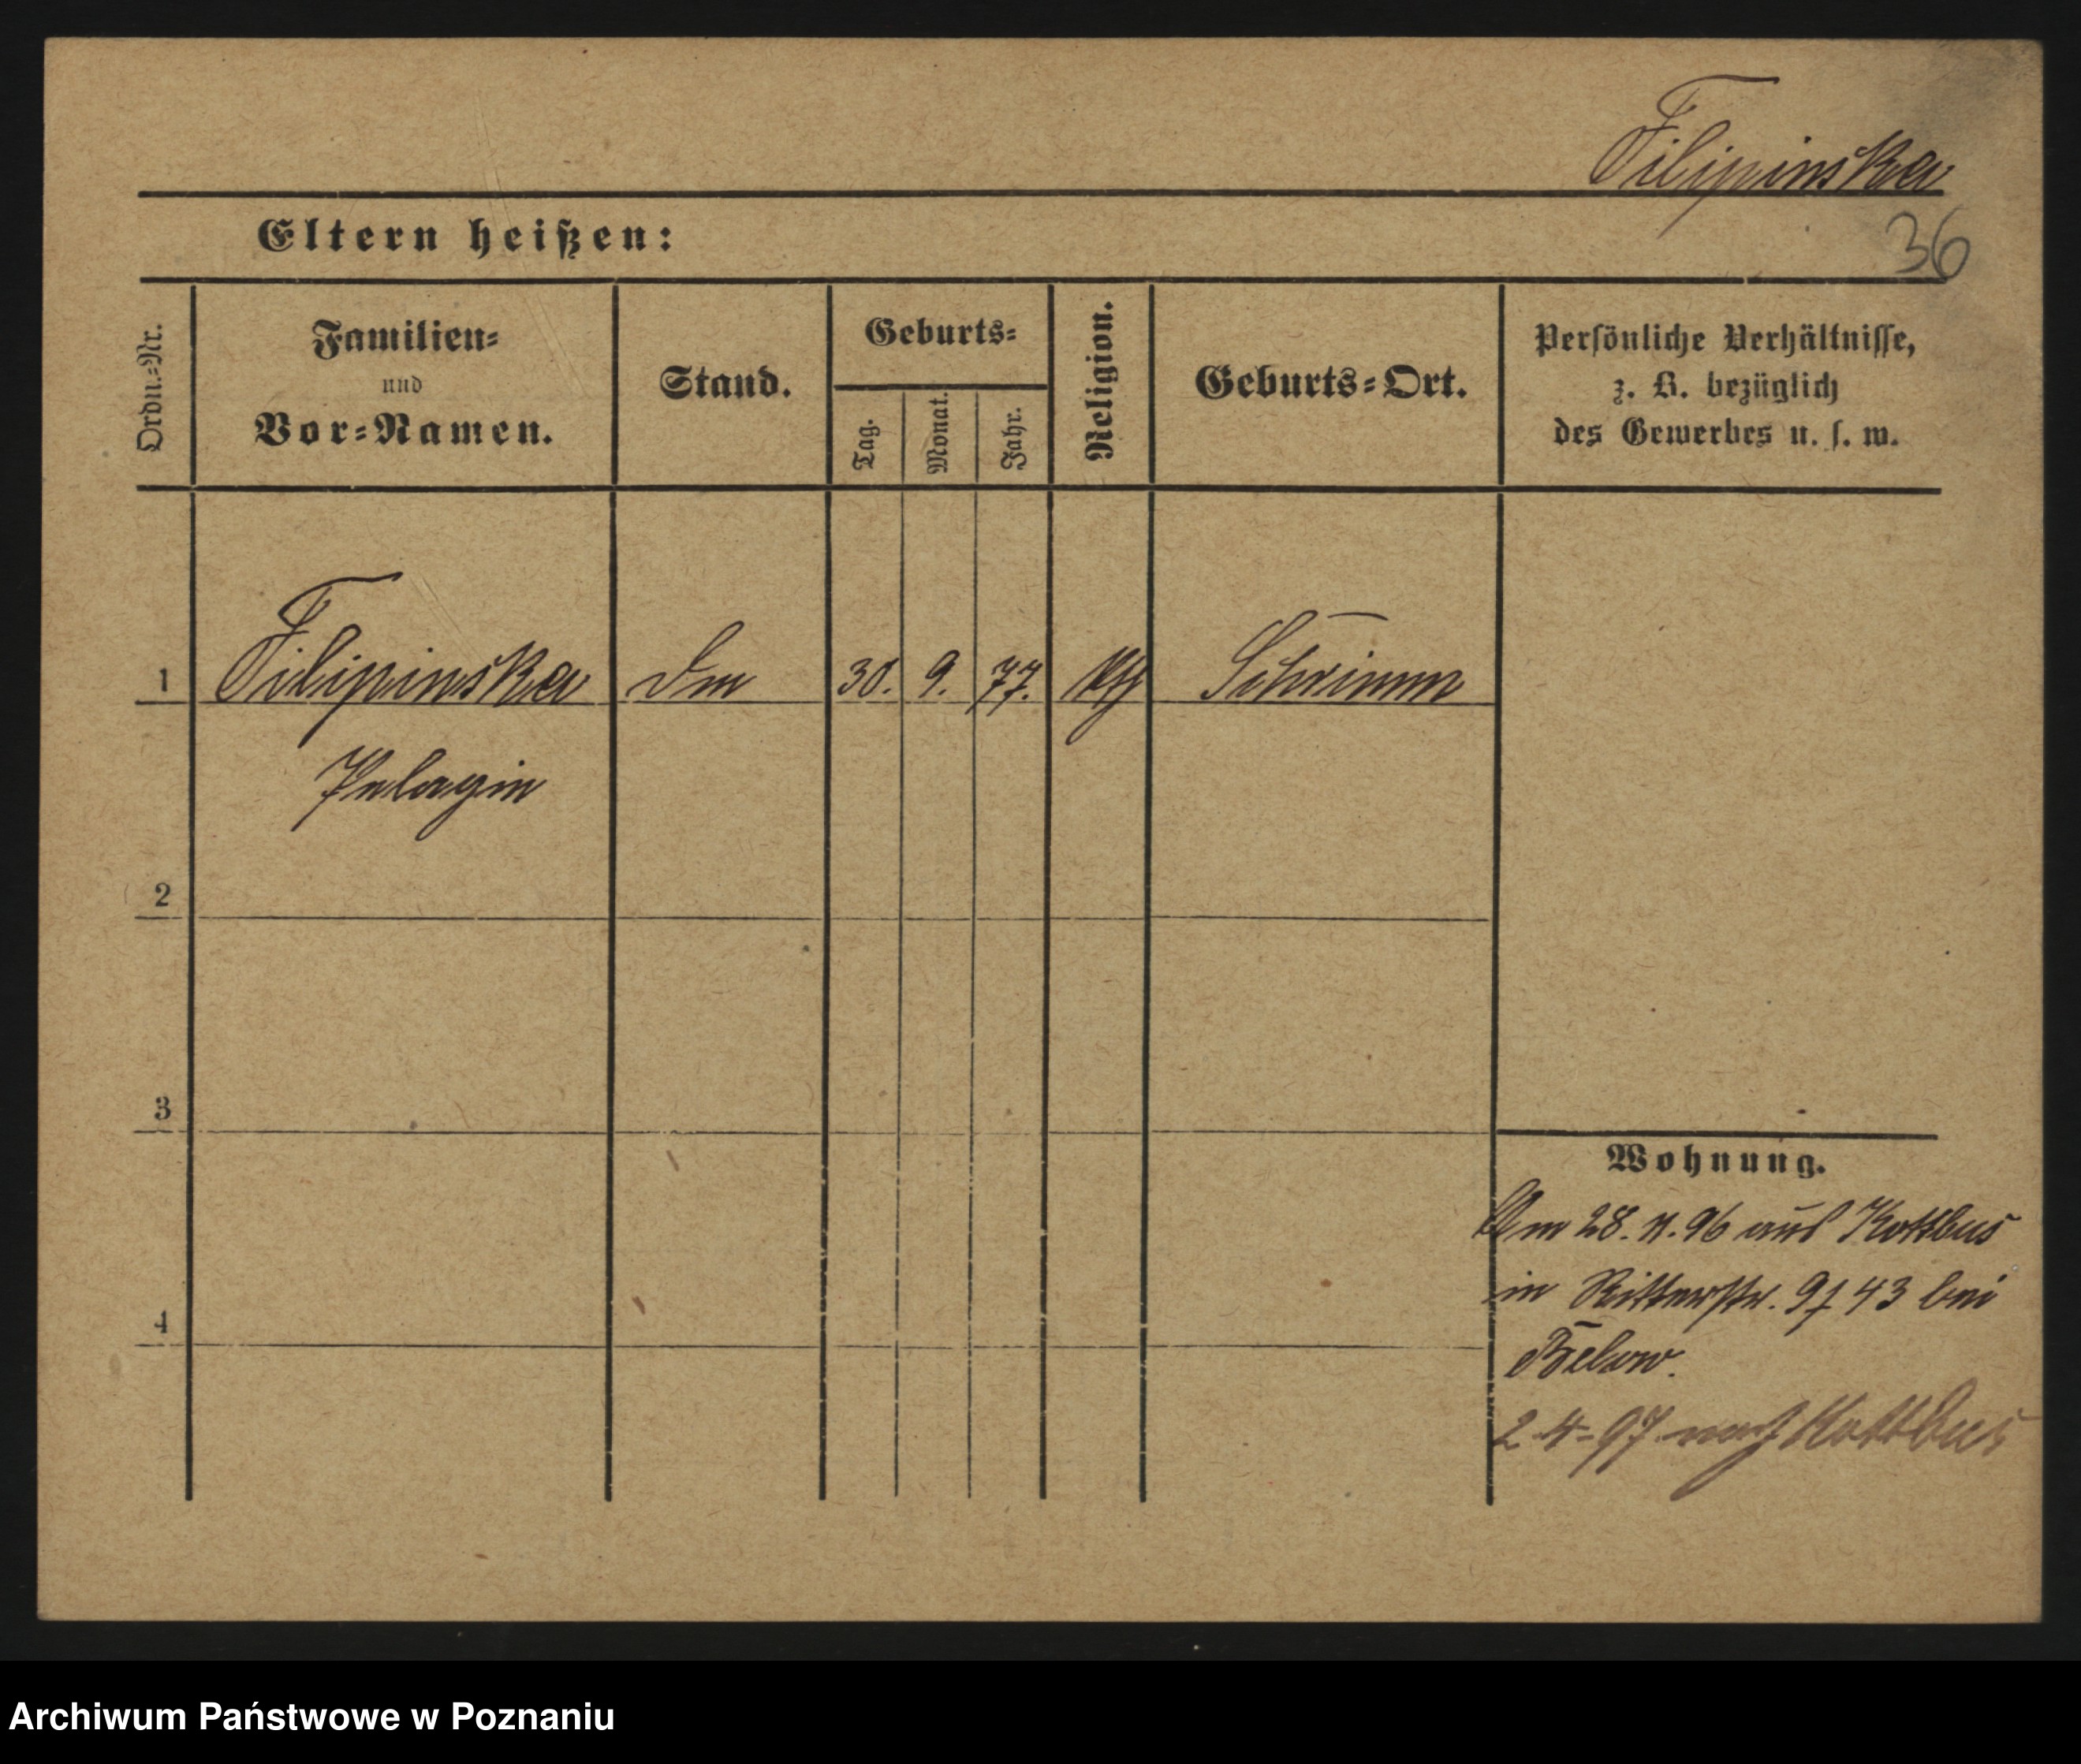 Filipinska
36
Eltern heißen:
Ordn.-Nr.
Familien-
und
Vor-Namen.
Stand.
Geburts-
Tag.
Monat.
Jahr.
Religion.
Geburts-Ort.
Persönliche Verhältnisse,
z. B. bezüglich
des Gewerbes u. s. w.
1 Filipinska 30. 9. 77. Schrimm
Pelagia
2
3
4
Wohnung.
Am 28. 11. 96 aus Kottbus
in Ritterstr. 43 bei
Below.
2-4-97 nach Kottbus
Archiwum Państwowe w Poznaniu